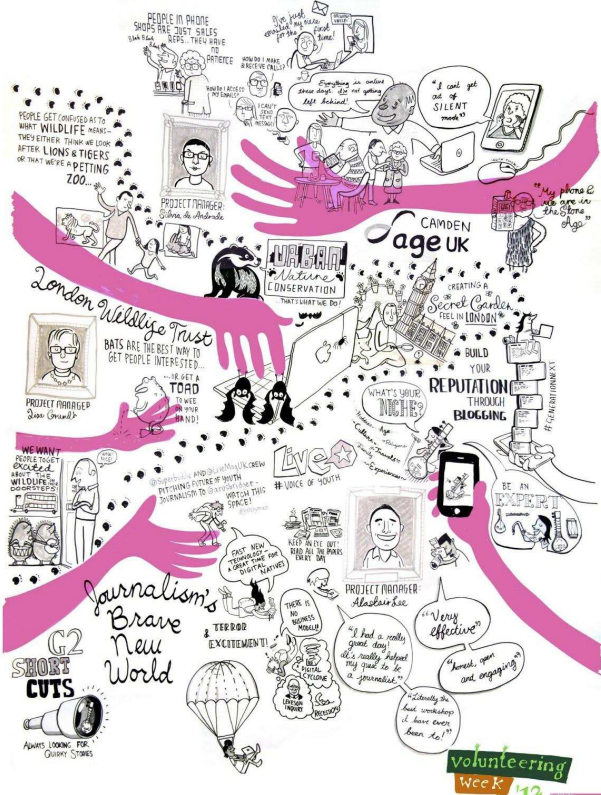 PEOPLE IN PHONE
SHOPS ARE JUST SALES
REPS... THEY HAVE
NO
PATIENCE
Blah Blah
Blah!
I've just
emailed my niece
for the first
time!
HOW DO I MAKE
& RECEIVE CALLS?
HOW DO I ACCESS
MY EMAILS?
I CAN'T
SEND
TEXT
MESSAGES!
Everything is online
these days. I'm not getting
left behind!
"I can't get
out of
SILENT
mode"
PEOPLE GET CONFUSED AS TO
WHAT WILDLIFE MEANS-
THEY EITHER THINK WE LOOK
AFTER LIONS & TIGERS
OR THAT WE'RE A PETTING
ZOO...
PROJECT MANAGER
Silvia de Andrade
"My phone &
me are in
the Stone
Age"
CAMDEN
age UK
URBAN
Nature
CONSERVATION
THAT'S WHAT WE DO!
CREATING A
Secret Garden
FEEL IN LONDON
London Wildlife Trust
BATS ARE THE BEST WAY TO
GET PEOPLE INTERESTED...
...OR GET A
TOAD
TO WEE
ON YOUR
HAND!
PROJECT MANAGER
BUILD
YOUR
REPUTATION
THROUGH
BLOGGING
#GENERATIONNEXT
WHAT'S YOUR
NICHE?
WE WANT
PEOPLE TO GET
excited
ABOUT THE
WILDLIFE ON THEIR
DOORSTEPS!
CREW
PITCHING FUTURE OF YOUTH
JOURNALISM TO
WATCH THIS
SPACE!
Live
# VOICE OF YOUTH
BE AN
EXPERT
KEEP AN EYE OUT!
READ ALL THE PAPERS
EVERY DAY
PROJECT MANAGER:
Alastair Lee
FAST NEW
TECHNOLOGY -
A GREAT TIME FOR
DIGITAL
NATIVES
Journalism's
Brave
New
World
TERROR
&
EXCITEMENT!
THERE IS
NO
BUSINESS
MODEL!!
THE
DIGITAL
CYCLONE
LEVESON
INQUIRY
RECESSION
"I had a really
great day!
It's really helped
my quest to be
a journalist"
"Very
effective"
"honest, open
and engaging"
"Literally the
best workshop
I have ever
been to!"
G2
SHORT
CUTS
ALWAYS LOOKING FOR
QUIRKY STORIES
volunteering
week
'12